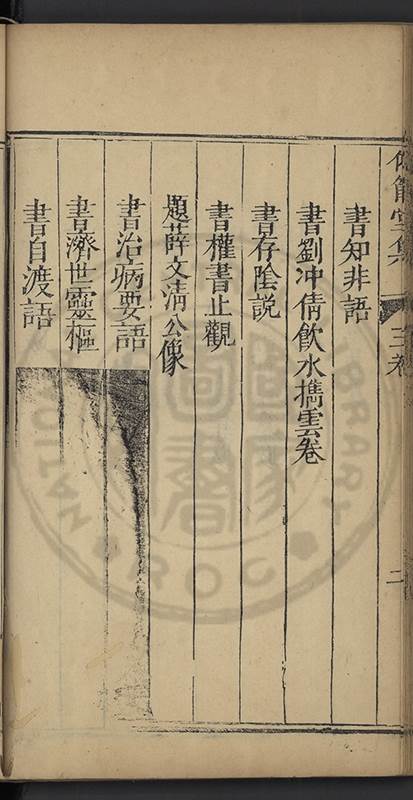 三卷
二
書知非語
書劉冲倩飲水搗雲卷
書存陰説
書權書止觀
題薛文清公像
書治病要語
書濟世靈樞
書自渡語